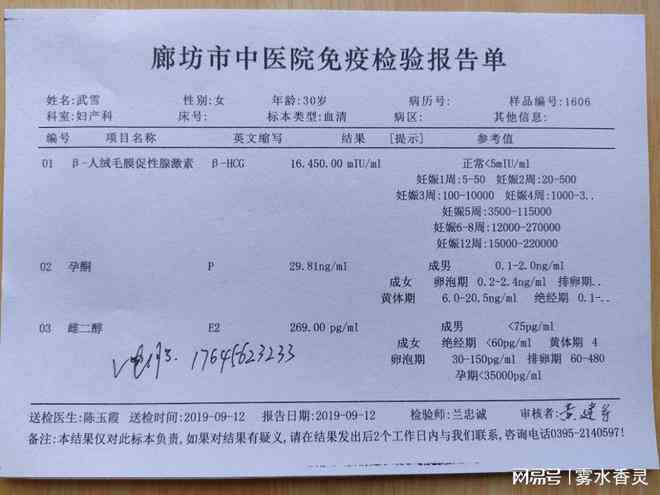 廊坊市中医院免疫检验报告单
姓名:武雪 性别:女 年龄:30岁 病历号: 样品编号:1606
科室:妇产科 床号: 标本类型:血清 病区: 其他信息:
编号 项目名称 英文缩写 结果 [提示] 参考值
01 β-人绒毛膜促性腺激素 β-HCG 16.450.00 mIU/ml 正常<5mIU/ml
妊娠1周:5-50 妊娠2周:20-500
妊娠3周:100-10000 妊娠4周:1000-3..
妊娠5周:3500-115000
妊娠6-8周:12000-270000
妊娠12周:15000-220000
02 孕酮 P 29.81ng/ml 成男 0.1-2.0ng/ml
成女 卵泡期 0.2-2.4ng/ml 排卵期..
黄体期 6.0-20.5ng/ml 绝经期 0.1-..
03 雌二醇 E2 269.00 pg/ml 成男 <75pg/ml
成女 绝经期 <60pg/ml 黄体期 4
卵泡期 30-150pg/ml 排卵期 60-480
孕期<35000pg/ml
17645623233
送检医生:陈玉霞 送检时间:2019-09-12 报告日期:2019-09-12 检验师:兰忠诚 审核者:
备注:本结果仅对此标本负责,如果对结果有疑义,请在结果发出后2个工作日内与我们联系,咨询电话0395-2140597!
网易号 | 雾水香灵